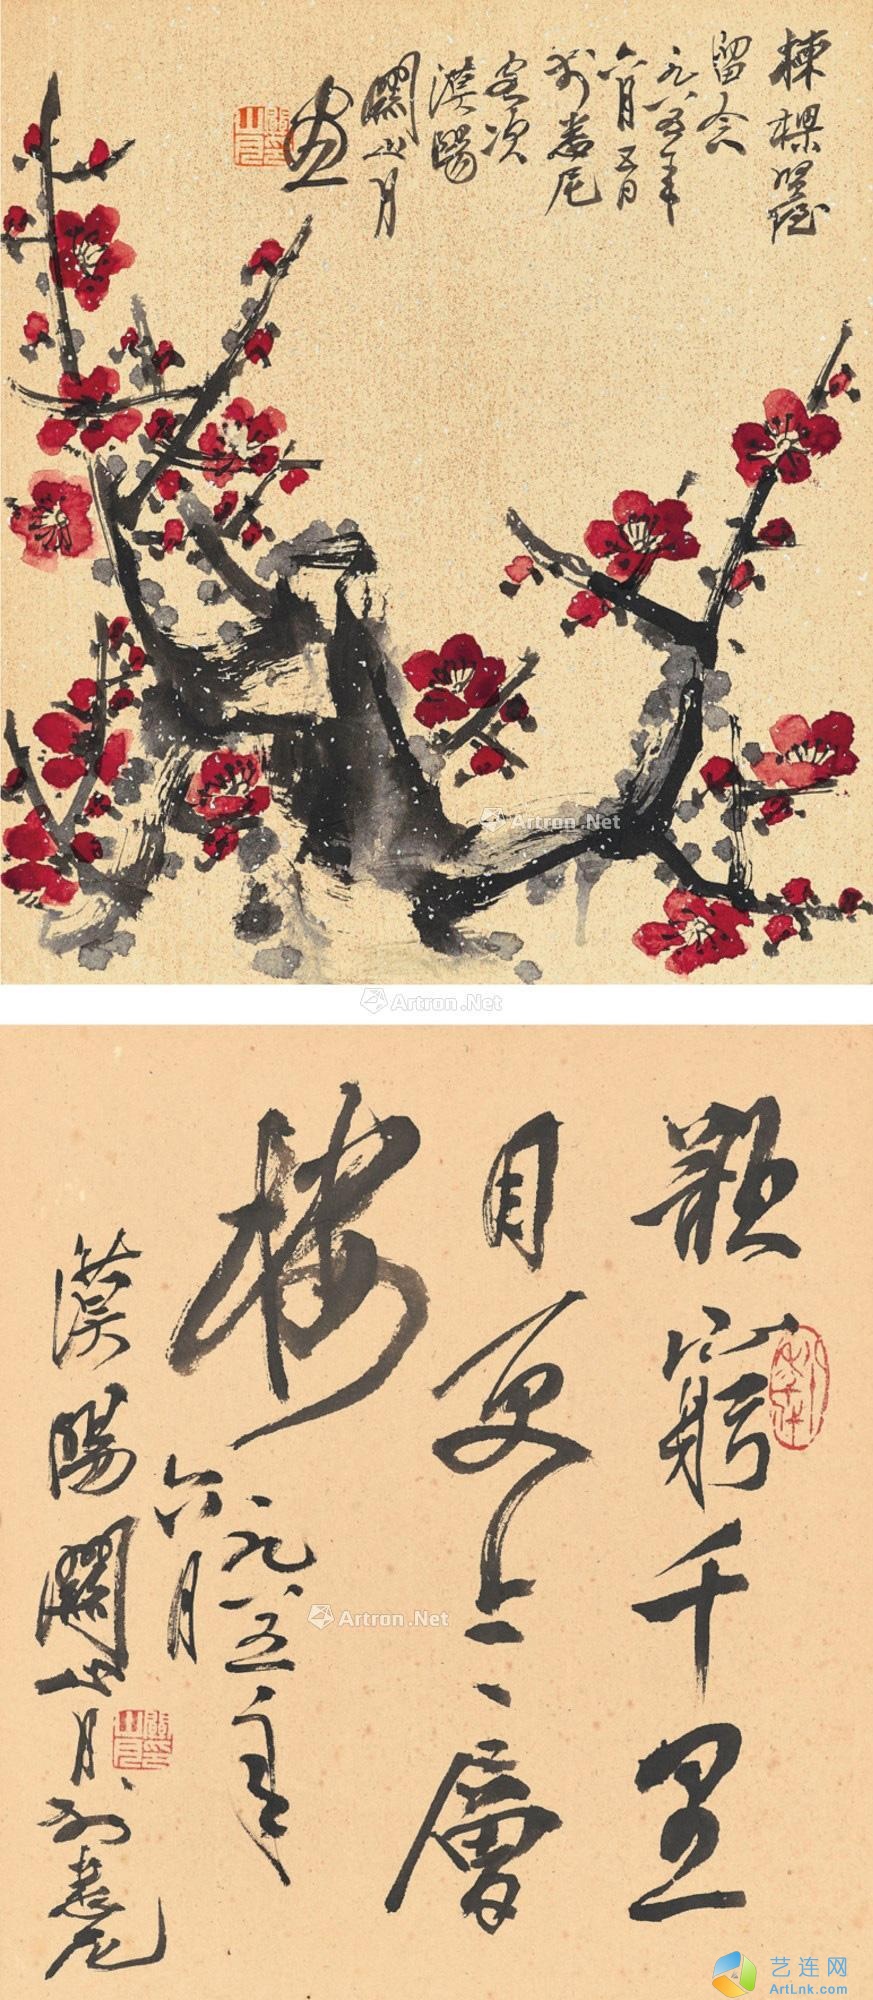 棟樑賢侄
留念
一九八五年
六月五日
於悉尼
客次
漠陽
關山月
畫
關山月
Artron.Net
Artron.Net
欲窮千里
目更上一層
樓
一九八五年
六月
漠陽關山月於悉尼
關山月
Artron.Net
艺连网
ArtLnk.com